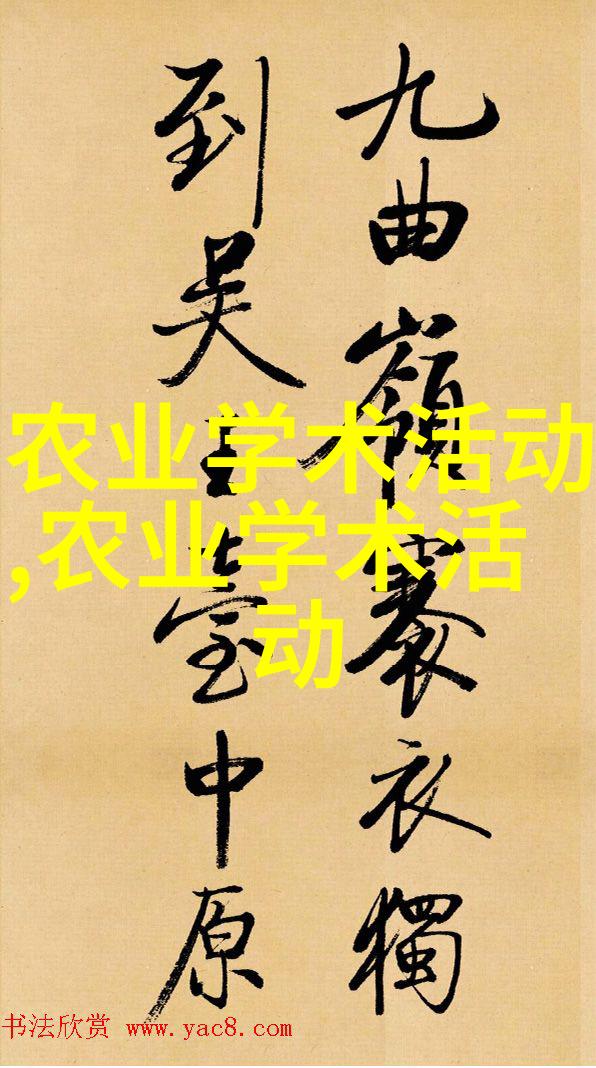 九曲嶺褰衣獨
到吴王臺中原
农业学术活动
,农业学术活
动
书法欣赏 www.yac8.com